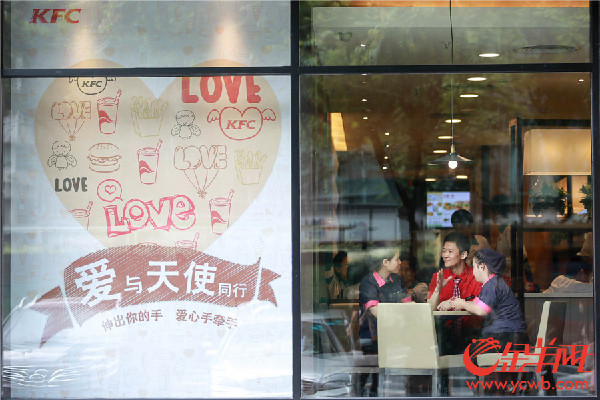 KFC
KFC
LOVE
LOVE
KFC
LOVE
LOVE
LOVE
爱与天使同行
伸出你的手 爱心手牵手
金羊网
www.ycwb.com